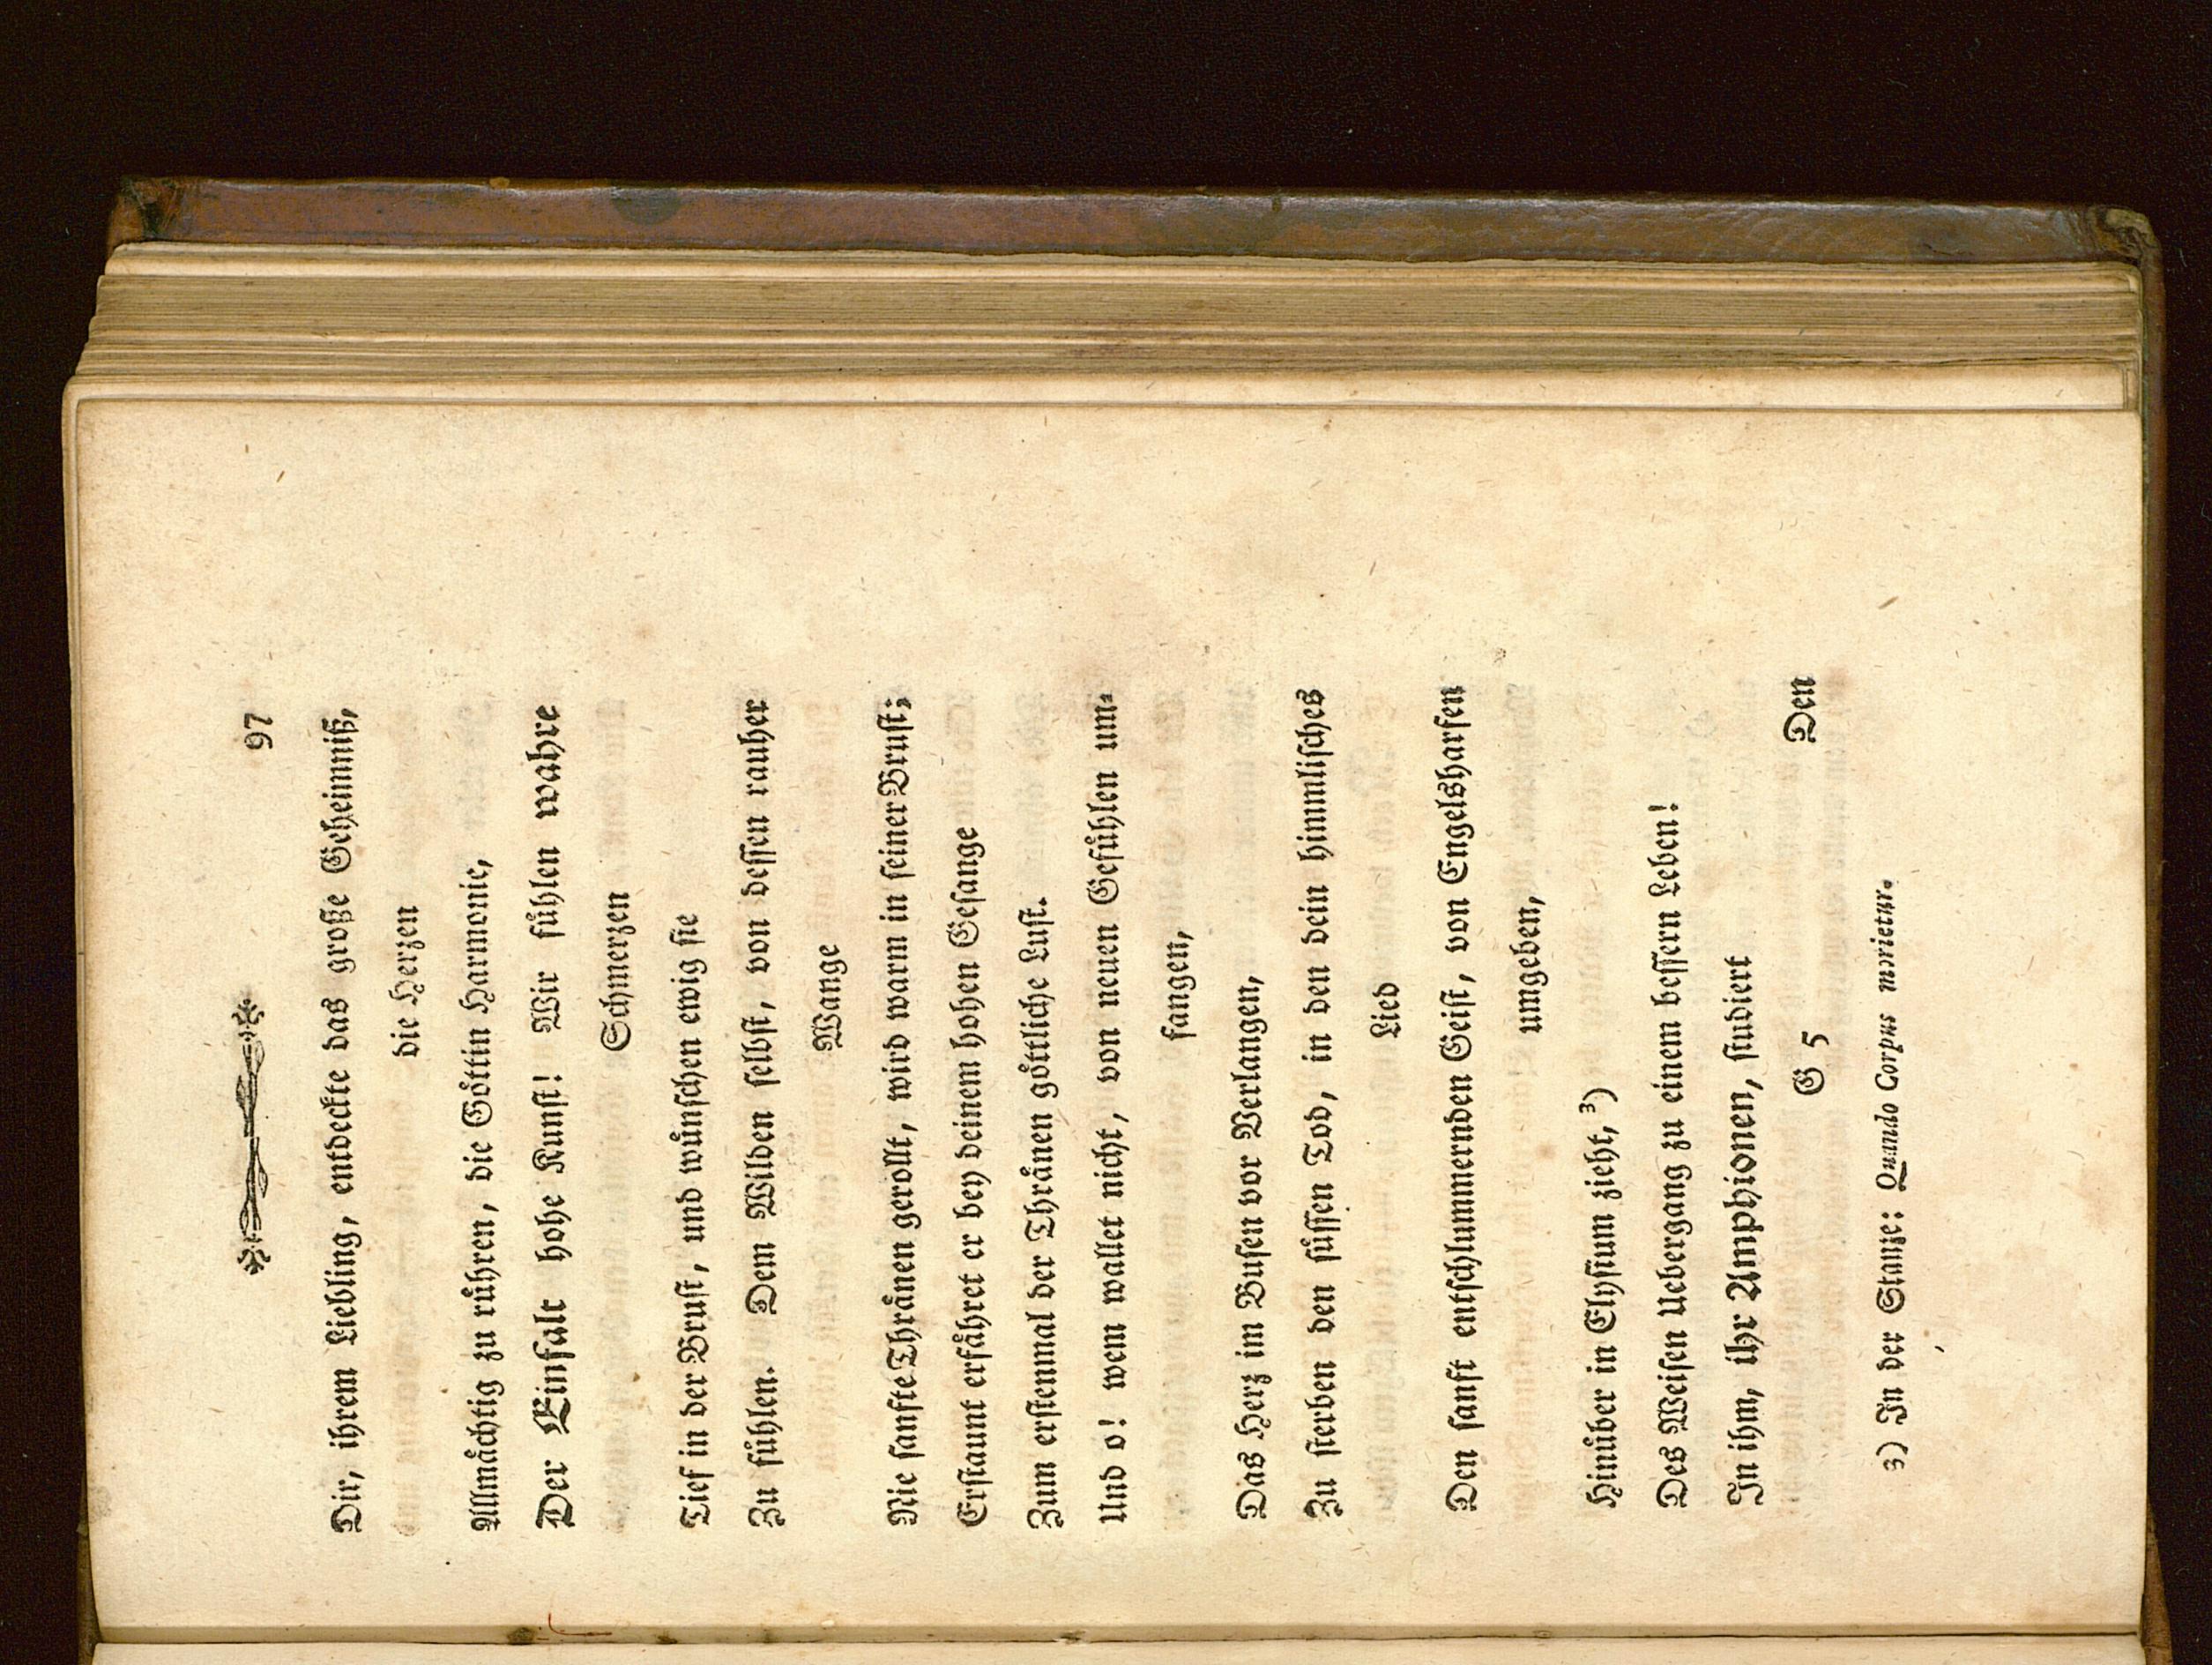 97
Dir, ihrem Liebling, entdeckte das große Geheimniß,
die Herzen
Allmaͤchtig zu ruͤhren, die Goͤttin Harmonie,
Der Einfalt hohe Kunst! Wir fuͤhlen wahre
Schmerzen
Tief in der Brust, und wuͤnschen ewig sie
Zu fuͤhlen. Dem Wilden selbst, von dessen rauher
Wange
Nie sanfte Thraͤnen gerollt, wird warm in seiner Brust;
Erstaunt erfaͤhret er bey deinem hohen Gesange
Zum erstenmal der Thraͤnen goͤttliche Lust.
Und o! wem wallet nicht, von neuen Gefuͤhlen um-
fangen,
Das Herz im Busen vor Verlangen,
Zu sterben den suͤssen Tod, in den dein himmlisches
Lied
Den sanft entschlummernden Geist, von Engelsharfen
umgeben,
Hinuͤber in Elysium zieht, ³)
Des Weisen Uebergang zu einem bessern Leben!
In ihm, ihr Amphionen, studiert
G 5 Den
3) In der Stanze: Quando Corpus morietur.